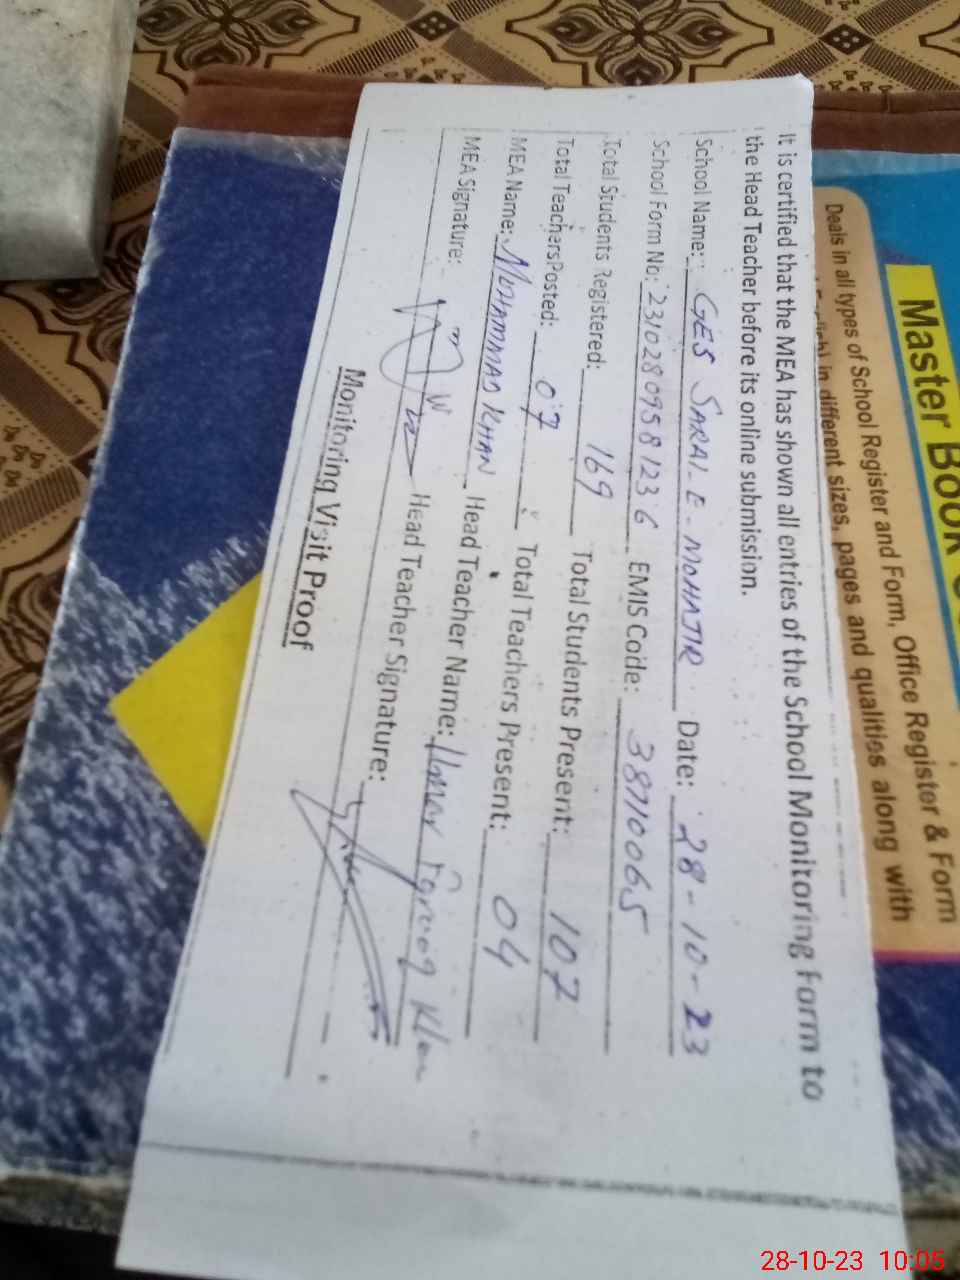 It is certified that the MEA has shown all entries of the School Monitoring Form to
the Head Teacher before its online submission.
School Name: GES SARAI-E-MOHAJIR Date: 28-10-23
School Form No: 23102809581236 EMIS Code: 38710065
Total Students Registered: 169 Total Students Present: 107
Total Teachers Posted: 07 Total Teachers Present: 04
MEA Name: MUHAMMAD KHAN Head Teacher Name: Umar Farooq Khan
MEA Signature: Head Teacher Signature:
Monitoring Visit Proof
Master Book
Deals in all types of School Register and Form, Office Register & Form
in different sizes, pages and qualities along with
28-10-23 10:05